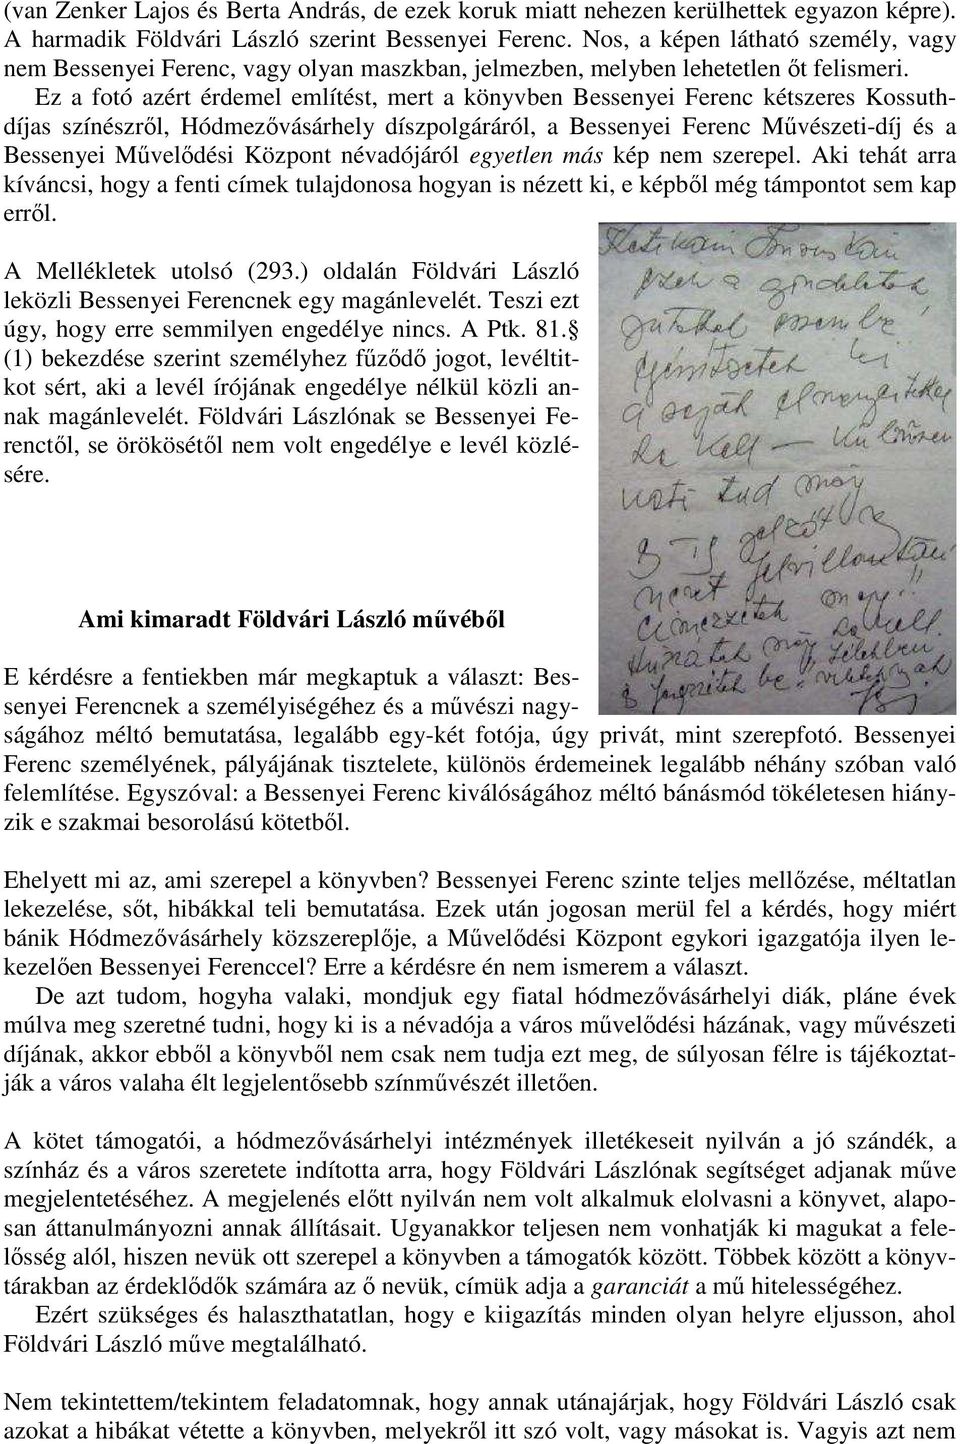 (van Zenker Lajos és Berta András, de ezek koruk miatt nehezen kerülhettek egyazon képre).
A harmadik Földvári László szerint Bessenyei Ferenc. Nos, a képen látható személy, vagy
nem Bessenyei Ferenc, vagy olyan maszkban, jelmezben, melyben lehetetlen őt felismeri.
Ez a fotó azért érdemel említést, mert a könyvben Bessenyei Ferenc kétszeres Kossuth-
díjas színészről, Hódmezővásárhely díszpolgáráról, a Bessenyei Ferenc Művészeti-díj és a
Bessenyei Művelődési Központ névadójáról egyetlen más kép nem szerepel. Aki tehát arra
kíváncsi, hogy a fenti címek tulajdonosa hogyan is nézett ki, e képből még támpontot sem kap
erről.
A Mellékletek utolsó (293.) oldalán Földvári László
leközli Bessenyei Ferencnek egy magánlevelét. Teszi ezt
úgy, hogy erre semmilyen engedélye nincs. A Ptk. 81.§
(1) bekezdése szerint személyhez fűződő jogot, levéltit-
kot sért, aki a levél írójának engedélye nélkül közli an-
nak magánlevelét. Földvári Lászlónak se Bessenyei Fe-
renctől, se örökösétől nem volt engedélye e levél közlé-
sére.
ezek a gondolatok
jutottak eszembe
a saját
Da Kell – Különösen
tud még
Ami kimaradt Földvári László művéből
E kérdésre a fentiekben már megkaptuk a választ: Bes-
senyei Ferencnek a személyiségéhez és a művészi nagy-
ságához méltó bemutatása, legalább egy-két fotója, úgy privát, mint szerepfotó. Bessenyei
Ferenc személyének, pályájának tisztelete, különös érdemeinek legalább néhány szóban való
felemlítése. Egyszóval: a Bessenyei Ferenc kiválóságához méltó bánásmód tökéletesen hiány-
zik e szakmai besorolású kötetből.
Ehelyett mi az, ami szerepel a könyvben? Bessenyei Ferenc szinte teljes mellőzése, méltatlan
lekezelése, sőt, hibákkal teli bemutatása. Ezek után jogosan merül fel a kérdés, hogy miért
bánik Hódmezővásárhely közszereplője, a Művelődési Központ egykori igazgatója ilyen le-
kezelően Bessenyei Ferenccel? Erre a kérdésre én nem ismerem a választ.
De azt tudom, hogyha valaki, mondjuk egy fiatal hódmezővásárhelyi diák, pláne évek
múlva meg szeretné tudni, hogy ki is a névadója a város művelődési házának, vagy művészeti
díjának, akkor ebből a könyvből nem csak nem tudja ezt meg, de súlyosan félre is tájékoztat-
ják a város valaha élt legjelentősebb színművészét illetően.
A kötet támogatói, a hódmezővásárhelyi intézmények illetékeseit nyilván a jó szándék, a
színház és a város szeretete indította arra, hogy Földvári Lászlónak segítséget adjanak műve
megjelentetéséhez. A megjelenés előtt nyilván nem volt alkalmuk elolvasni a könyvet, alapo-
san áttanulmányozni annak állításait. Ugyanakkor teljesen nem vonhatják ki magukat a fele-
lősség alól, hiszen nevük ott szerepel a könyvben a támogatók között. Többek között a könyv-
tárakban az érdeklődők számára az ő nevük, címük adja a garanciát a mű hitelességéhez.
Ezért szükséges és halaszthatatlan, hogy e kiigazítás minden olyan helyre eljusson, ahol
Földvári László műve megtalálható.
Nem tekintettem/tekintem feladatomnak, hogy annak utánajárjak, hogy Földvári László csak
azokat a hibákat vétette a könyvben, melyekről itt szó volt, vagy másokat is. Vagyis azt nem